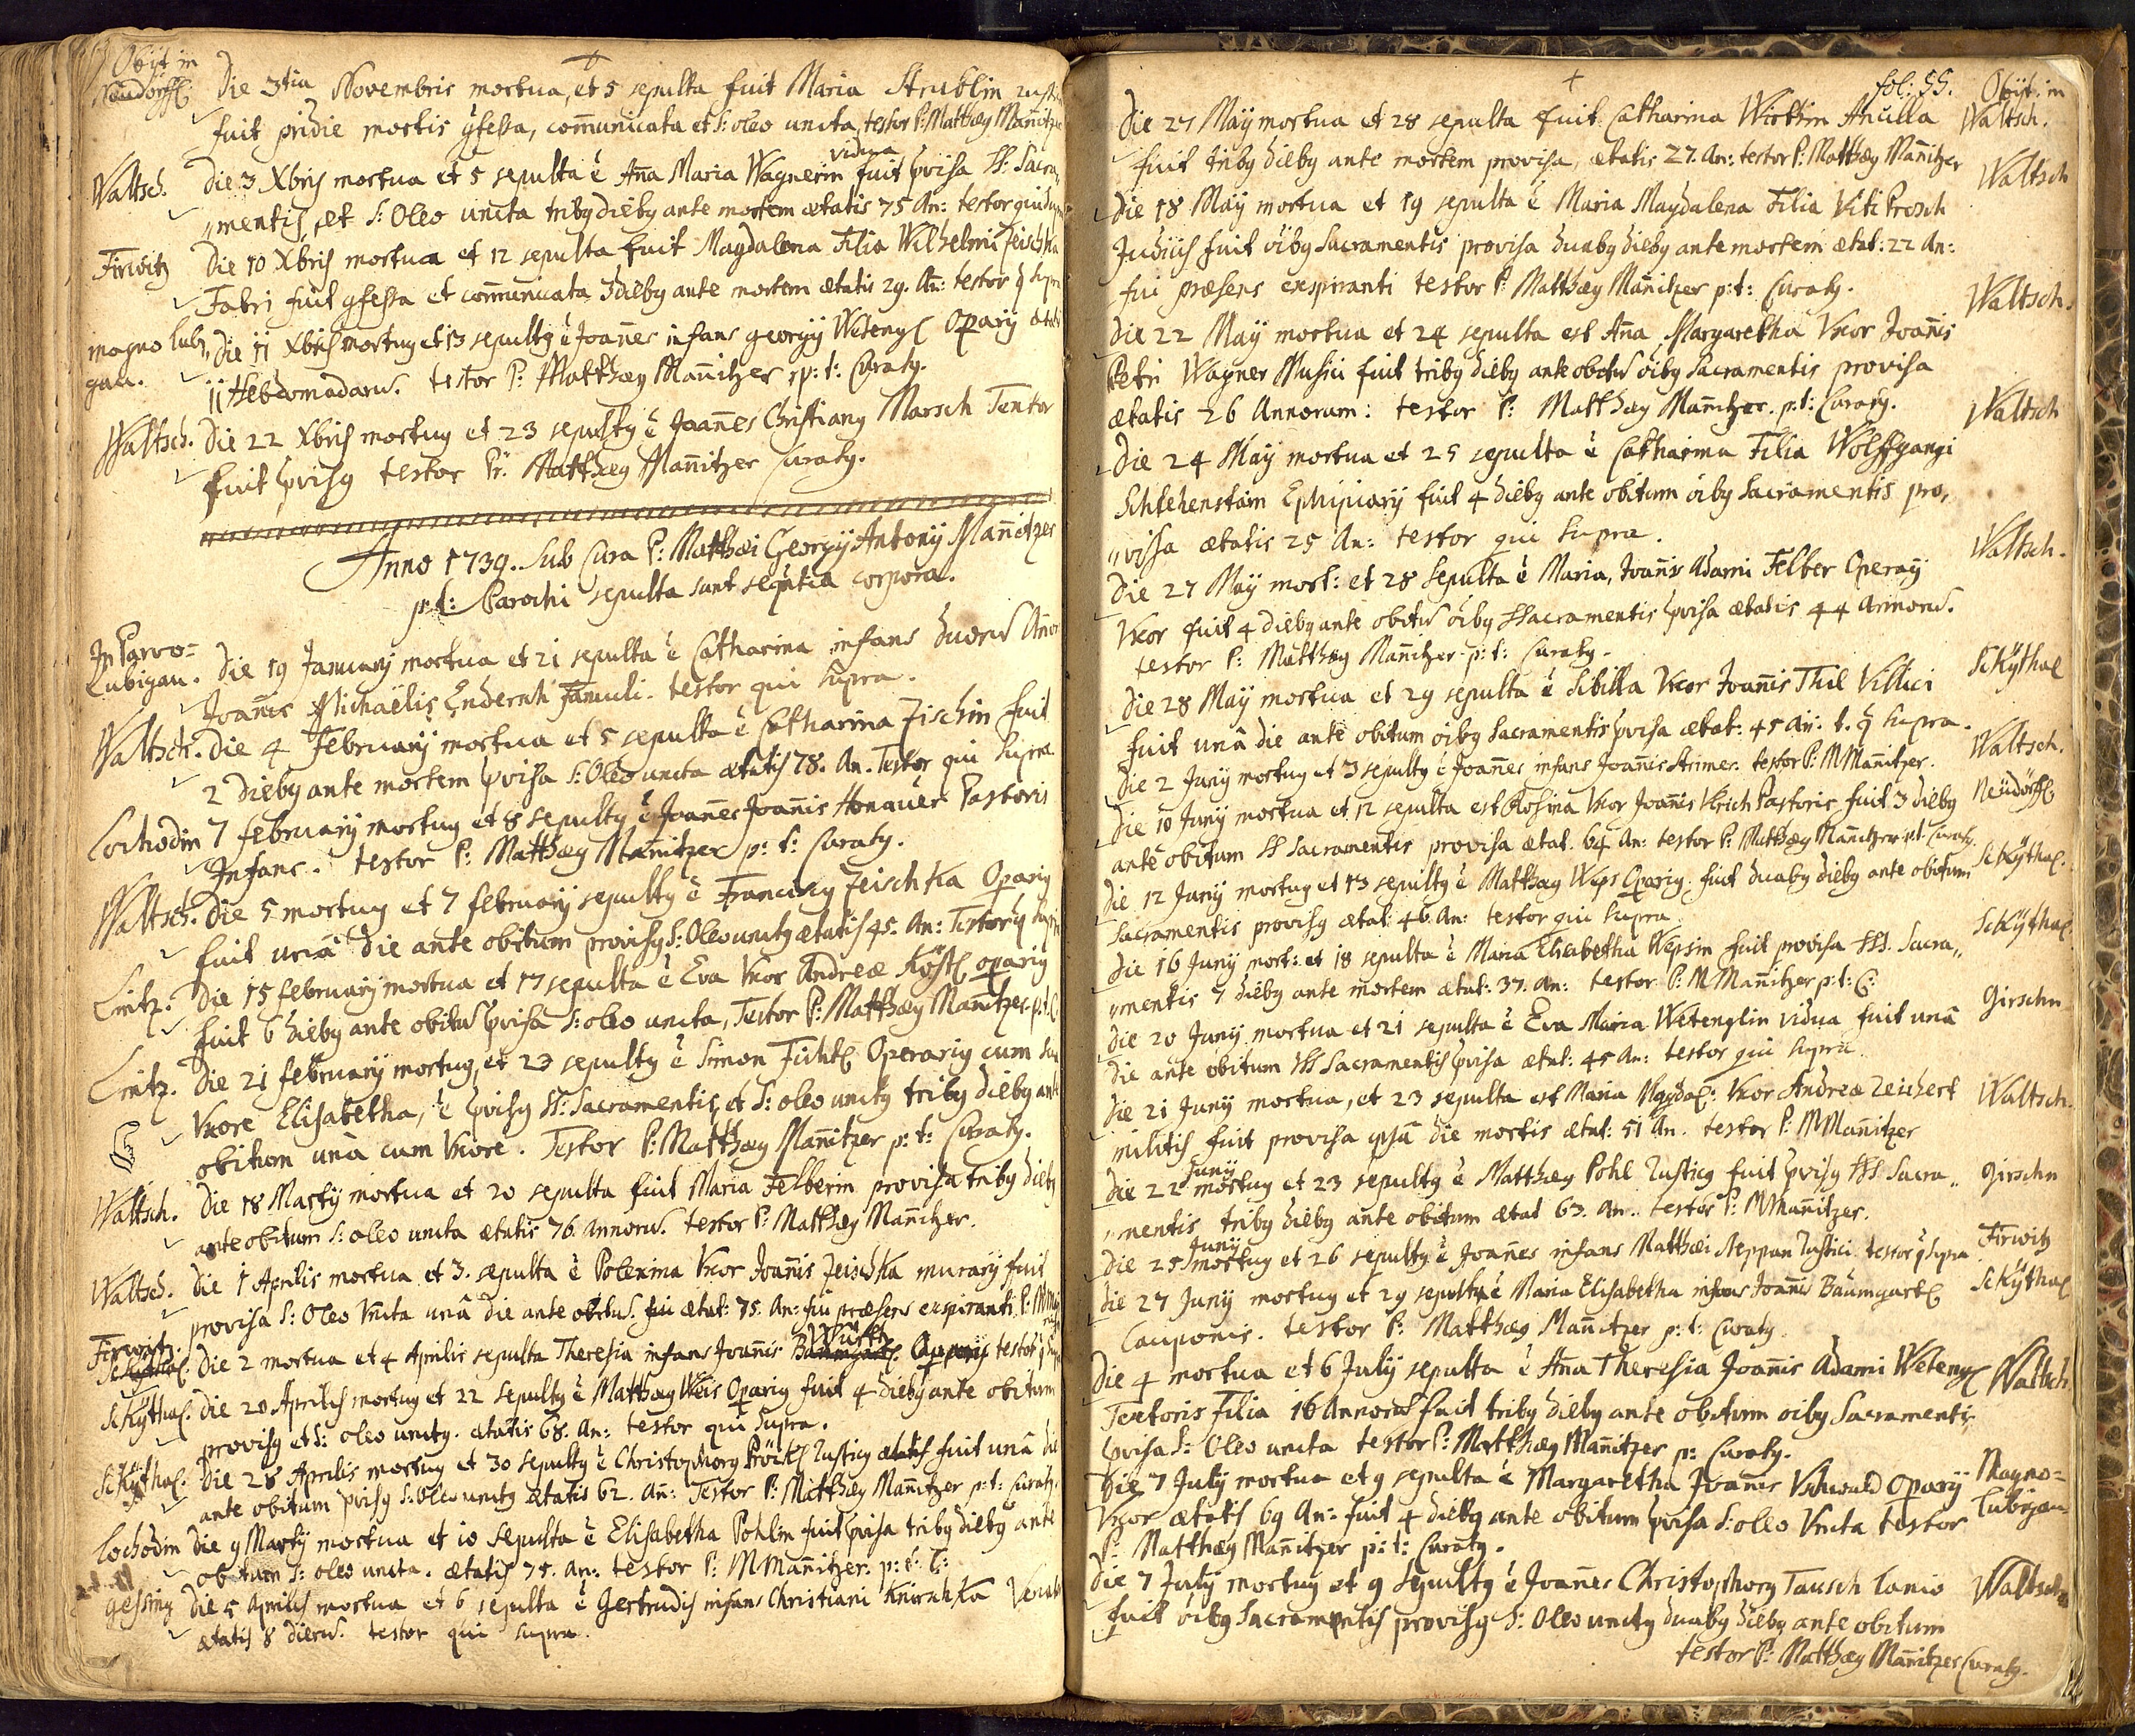 Obijt in
Neudörffl.
Die 3tia Novembris mortua, et 5 sepulta fuit Maria Strublin
fuit pridie mortis gfessa, com̄unicata et S: oleo uncta, testor P: Matthæg Man̄itzer
Waltsch. Die 3 Xbris mortua et 5 sepulta ē An̄a Maria Wagnerin vidua fuit pvisa SS. Sacra„
„mentis, et S: Oleo uncta triby dieby ante mortem ætatis 75 An: testor qui supra
Firwitz Die 10 Xbris mortua et 12 sepulta fuit Magdalena Filia Wilhelmi Zeischka
Fabri fuit gfessa et com̄unicata 3 dieby ante mortem ætatis 29. An: testor q supra
magno lubi„ Die 11 Xbris mortug et 13 sepultg ē Joan̄es infans georgij Wetengl Opārij ætatis
gau. 11 Hebdomadarū. testor P: Matthæg Man̄itzer p: t: Curatg.
Waltsch. Die 22 Xbris mortug et 23 sepultg ē Joan̄es Christiang Marsch Textor
fuit pvisg testor P: Matthæg Man̄itzer Curatg.
Anno 1739. Sub Cura P: Matthæi Georgij Antonij Man̄itzer
p: t: Parochi sepulta sunt seqūtia corpora.
In Parvo=
Lubigau. Die 19 Januarij mortua et 21 sepulta ē Catharina infans duorū An̄orū
Joan̄is Michaëlis Endernh Famuli. testor qui supra.
Waltsch. Die 4 Februarij mortua et 5 sepulta ē Catharina Zischin fuit
2 dieby ante mortem pvisa S: Oleo uncta ætatis 78. An. Testor qui supra
Lochodin 7 februarij mortug et 8 sepultg ē Joan̄es Joan̄is Honauer Pastoris
Infans. testor P: Matthæg Man̄itzer p: t: Curatg.
Waltsch. Die 5 mortug et 7 februarij sepultg ē Franciscg Zeischka Opārig
fuit unâ die ante obitum provisg S: Oleo unctg ætatis 45. An: Testor q supra
Lintz. Die 15 februarij mortua et 17 sepulta ē Eva Uxor Andreæ Köstl opārij
fuit 6 dieby ante obitū pvisa S: oleo uncta, Testor P: Matthæg Man̄itzer. p. t. C.
Lintz. Die 21 februarij mortug, et 23 sepultg ē Simon Fichtl Operarig cum sua
Uxore Elisabetha, ē pvisg SS: Sacramentis, et S: oleo unctg triby dieby ante
obitum unâ cum Uxore. Testor P: Matthæg Man̄itzer p: t: Curatg.
Waltsch. Die 18 Martij mortua et 20 sepulta fuit Maria Felberin provisa triby dieby
ante obitum S: oleo uncta ætatis 76. Annorū. testor P: Matthæg Man̄itzer.
Waltsch. Die 1 Aprilis mortua et 3. sepulta ē Polexina Uxor Joan̄is Zeischka murarij fuit
provisa S: Oleo Uncta unâ die ante obitū. fui ætat: 75. An: fui præsens exspiranti. P: M Man̄itzer
Firwitz.
Sckythal. Die 2 mortua et 4 Aprilis sepulta Theresia infans Joan̄is Baumgartl. Opārij testor q supra
Sckythal. Die 20 Aprilis mortug et 22 sepultg ē Matthæg Weis Opārig fuit 4 dieby ante obitum
provisg et S: oleo unctg. ætatis 68. An: testor qui supra.
Sckythal. Die 28 Aprilis mortug et 30 sepultg ē Christophorg Pröckl rusticg ætatis fuit unâ die
ante obitum pvisg S: oleo unctg ætatis 62. An̄: Testor P: Matthæg Man̄itzer p: t: Curatg.
Lochodin Die 9 Martij mortua et 10 sepulta ē Elisabetha Pohlin fuit pvisa triby dieby ante
obitum S: oleo uncta. ætatis 75. An: testor P: M Man̄itzer: p: t: C:
gessing Die 5 Aprilis mortua et 6 sepulta ē Gertrudis infans Christiani Knirschka
ætatis 8 dierū. testor qui supra.
fol: 55. Obijt in
Die 27 Maij mortua et 28 sepulta fuit Catharina Wirthin Ancilla Waltsch.
fuit triby dieby ante mortem provisa, ætatis 27. An: testor P: Matthæg Man̄itzer
Die 18 Maij mortua et 19 sepulta ē Maria Magdalena Filia Viti Prosch Waltsch
Judicis fuit oiby Sacramentis provisa duaby dieby ante mortem ætat: 22 An:
fui præsens exspiranti testor P: Matthæg Man̄itzer p: t: Curatg.
Die 22 Maij mortua et 24 sepulta est An̄a Margaretha Uxor Joan̄is Waltsch.
Petri Wagner Musici fuit triby dieby ante obitū oiby Sacramentis provisa
ætatis 26 Annorum: testor P: Matthæg Man̄itzer. p: t: Curatg.
Die 24 Maij mortua et 25 sepulta ē Catharina Filia Wolffgangi Waltsch
Schlehenstain Ephipiarij fuit 4 dieby ante obitum oiby Sacramentis pro„
„visa ætatis 25 An: testor qui supra.
Die 27 Maij mort: et 28 sepulta ē Maria, Joan̄is Adami Felber Operarij Waltsch.
Uxor fuit 4 dieby ante obitū oiby SSacramentis pvisa ætatis 44 Annorū.
testor P: Matthæg Man̄itzer p: t: Curatg.
Die 28 Maij mortua et 29 sepulta ē Sibilla Uxor Joan̄is Thil Villici Sckÿthal
fuit unâ die ante obitum oiby Sacramentis pvisa ætat: 45 An̄: t. q supra.
Die 2 Junij mortug et 3 sepultg ē Joan̄es infans Joan̄is Strimer: testor P: M Man̄itzer. Waltsch.
Die 10 Junij mortua et 12 sepulta est Rosina Uxor Joan̄is Ulrich Pastoris fuit 3 dieby Neüdörffl
ante obitum SS Sacramentis provisa ætat. 64 An: testor P: Matthæg Man̄itzer p.t. Curatg.
Die 12 Junij mortug et 13 sepultg ē Matthæg Weps Opārig. fuit duaby dieby ante obitum Sckÿthal.
Sacramentis provisg ætat: 46. An: testor qui supra
Die 16 Junij mort: et 18 sepulta ē Maria Elisabetha Wepsin fuit provisa SSS. Sacra„ Sckÿthal.
„mentis 7 dieby ante mortem ætat: 37. An: testor P: M Man̄itzer p: t: C:
Die 20 Junij mortua et 21 sepulta ē Eva Maria Wetenglin vidua fuit unâ Girschn
Die ante obitum SSS Sacramentis pvisa ætat: 45 An: testor qui supra.
Die 21 Junij mortua, et 23 sepulta est Maria Magdal: Uxor Andreæ Zeichert Waltsch.
militis fuit provisa ipsâ die mortis ætat: 51 An. testor P: M Man̄itzer
Die 22 Junij mortug et 23 sepultg ē Matthæg Pohl rusticg fuit pvisg SSS. Sacra„ Girschn
„mentis triby dieby ante obitum ætat 63. An.. testor P: M Man̄itzer.
Die 25 Junij mortug et 26 sepultg ē Joan̄es infans Matthæi Neppan rustici testor q supra Firwitz
Die 27 Junij mortug et 29 sepulta ē Maria Elisabetha infans Joan̄is Baumgartl Sckythal
Cauponis. testor P: Matthæg Man̄itzer p: t: Curatg.
Die 4 mortua et 6 Julij sepulta ē An̄a Theresia Joan̄is Adami Wetengl Waltsch.
Textoris Filia 16 Annorū fuit triby dieby ante obitum oiby Sacramentis
pvisa S: Oleo uncta testor P: Matthæg Man̄itzer p: Curatg.
Die 7 Julij mortua et 9 sepulta ē Margaretha Joan̄is Vchwald Opārij Magno=
Uxor ætatis 69 An: fuit 4 dieby ante obitum pvisa S: oleo Uncta testor Lubigau
P: Matthæg Man̄itzer p: t: Curatg.
Die 7 Julij mortug et 9 sepultg ē Joan̄es Christophorg Tausch Lanio Waltsch
fuit oiby Sacramentis provisg S: Oleo unctg duaby dieby ante obitum
testor P: Matthæg Man̄itzer Curatg.